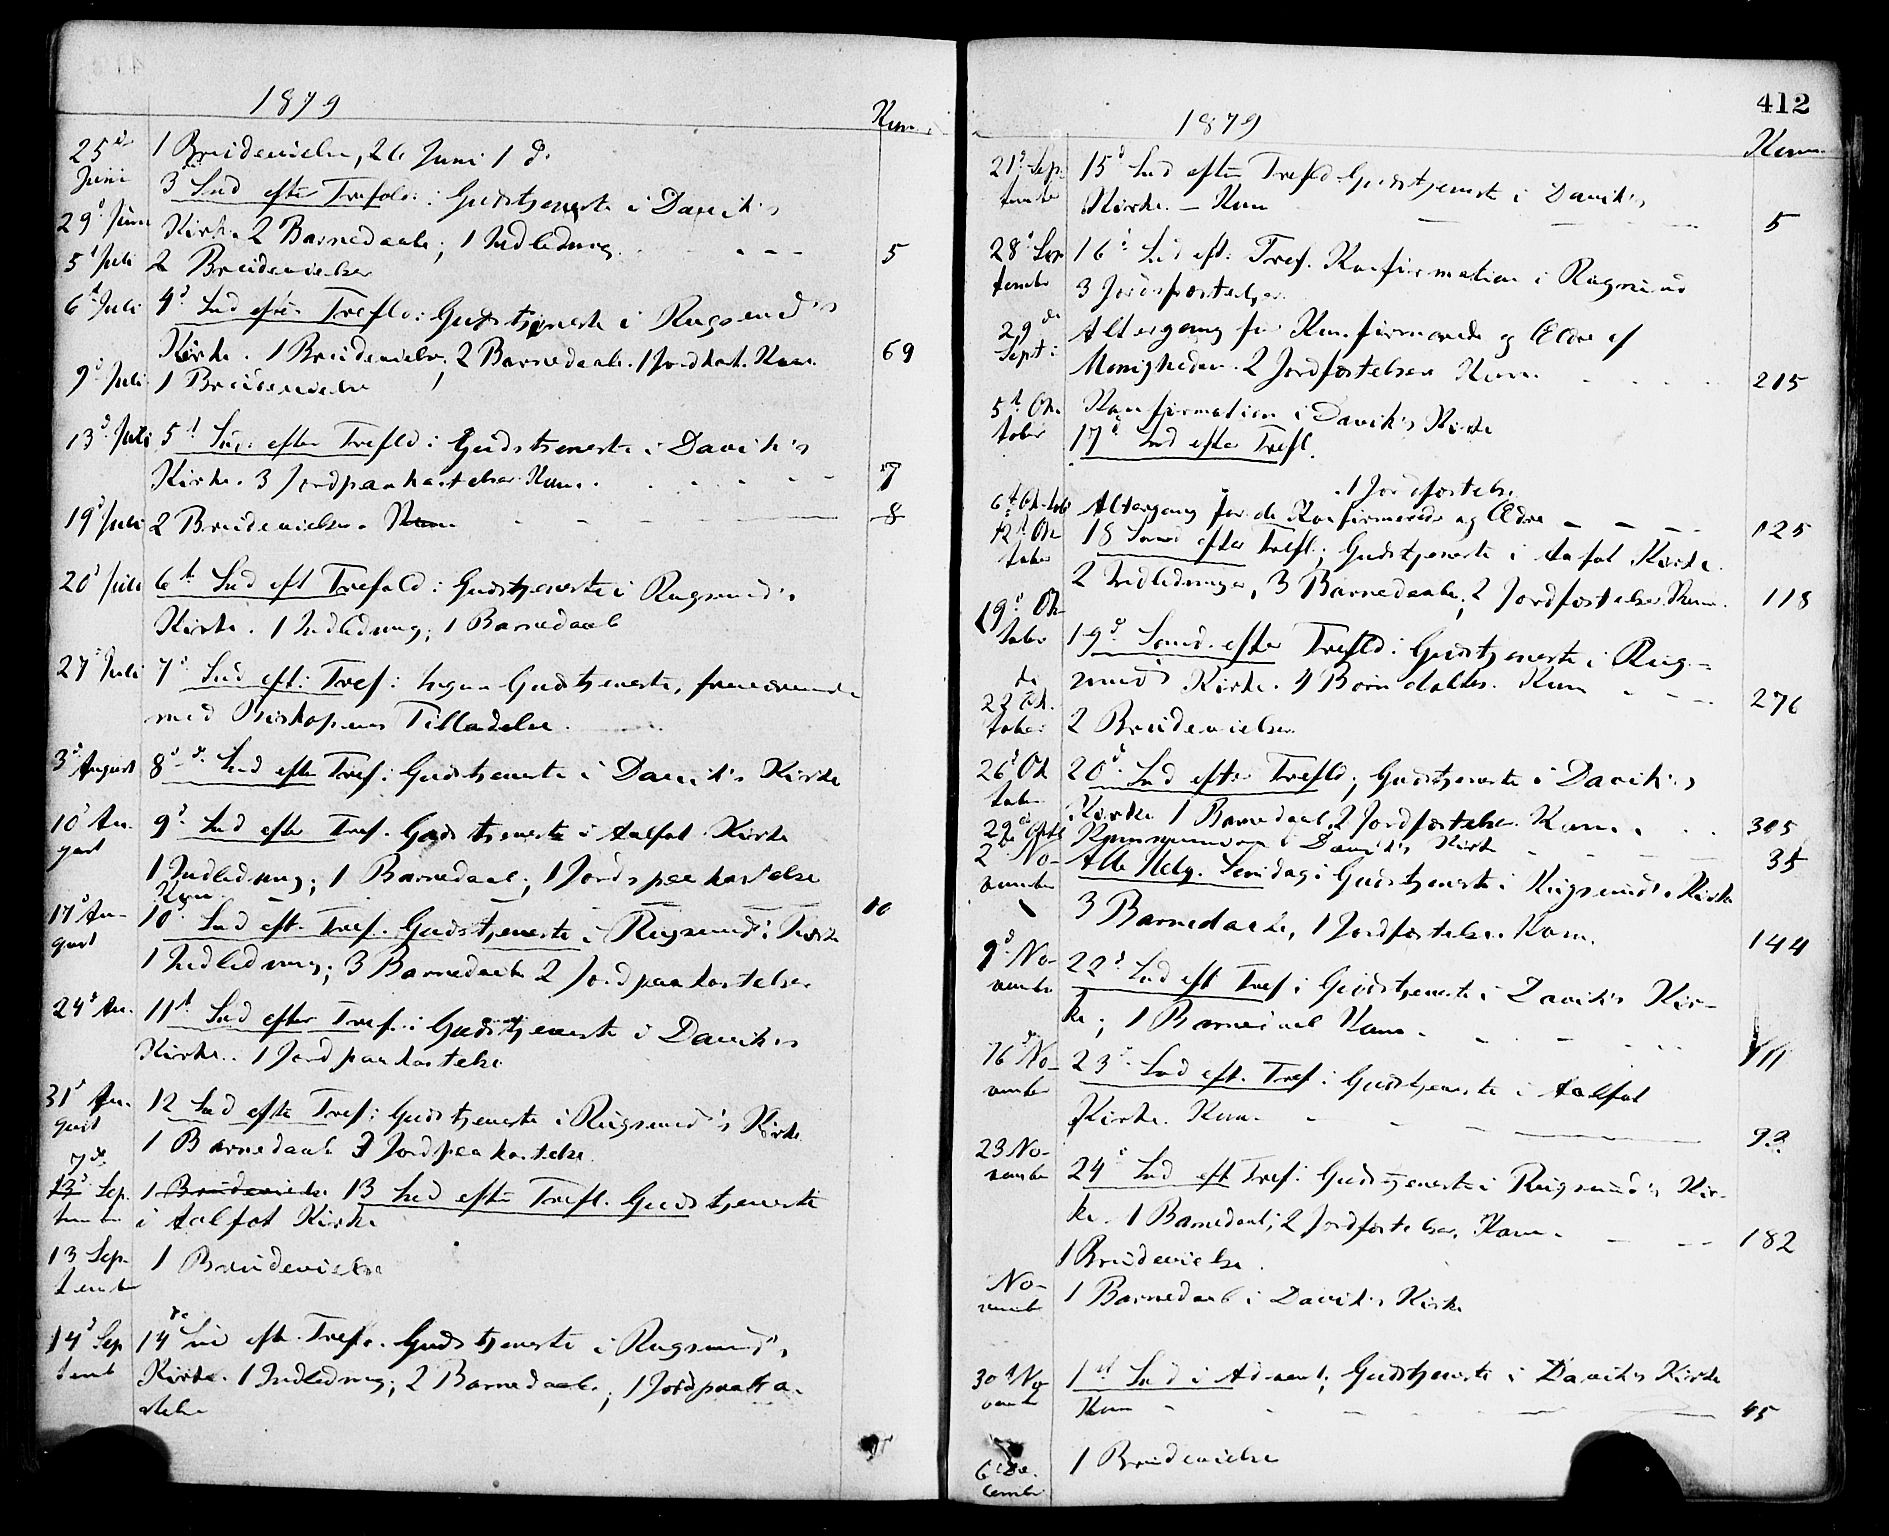 1879
Kom.
25de Juni 1 Brudevielse, 26 Juni 1 d.
3d Snd efter Trefold: Gudstjeneste i Davik's
29d Juni Kirke 2 Barnedaab; 1 Indledning. - - - 5
5t Juli 2 Brudevielser
6t Juli 4d Snd efter Trefld: Gudstjeneste i Rugsund's
Kirke. 1 Brudevielse, 2 Barnedaab. 1 Jordkast. Kom. 69
9d Juli 1 Brudevielse
13d Juli 5t Snd: efter Trefld: Gudstjeneste i Davik's
Kirke. 3 Jordpaakastelser Kom. - - - 7
19d Juli 2 Brudevielser. Kom. - - - 8
20d Juli 6t Snd eft Trefold: Gudstjeneste i Rugsund's
Kirke. 1 Indledning; 1 Barnedaab
27d Juli 7d Snd eft: Tref: Ingen Gudstjeneste, fraværende
med Biskopens Tilladelse.
3d August 8d Snd efter Tref: Gudstjeneste i Davik's Kirke
10d Au-
gust
9d Snd efter Tref. Gudstjeneste i Aalfot Kirke
1 Indledning; 1 Barnedaab; 1 Jordspaakastelse
Kom. - - - 10
17d Au-
gust
10d Snd eft. Tref. Gudstjeneste i Rugsunds Kirke
1 Indledning; 3 Barnedaab 2 Jordpaakastelser
24d Au. 11t Snd efter Tref. i Gudstjeneste i Davik's
Kirke. 1 Jordpaakastelse
31t Au-
gust
12 Snd efter Tref: Gudstjeneste i Rugsund's Kirke
1 Barnedaab 3 Jordpaakastelse.
7de
13d Sep-
tember
1 Brudevielse. 13 Snd efter Trefl. Gudstjeneste
i Aalfot Kirke
13 Sep-
tember
1 Brudevielse
14d Sep
temb
14de Snd eft. Tref. Gudstjeneste i Rugsund's
Kirke. 1 Indledning; 2 Barnedaab; 1 Jordpaaka-
stelse
412
1879
Kom.
21d Sep-
tember
15d Snd efter Trefld Gudstjenest i Davik's
Kirke. - Kom - - - 5
28d Sep
tember
16d Snd eft. Tref. Konfirmation i Rugsund
3 Jordsfæstelser.
29de
Sept:
Altergang for Konfirmerede og Ældre af
Menigheden. 2 Jordfæstelser Kom. - - - 215
5t Ok
tober
Konfirmation i Davik's Kirke
17d Snd efter Trefl.
1 Jordfæstelse
6t Oktob Altergang for de Konfirmerede og Ældre - - - 125
12t Ok
tober
18 Sønd efter Trefl.; Gudstjeneste i Aalfot Kirke.
2 Indledninger, 3 Barnedaab; 2 Jordfæstelser. Kom. 118
19d Ok
tober
19d Sønd. efter Trefld: Gudstjeneste i Rug-
sunds Kirke. 4 Børn døbtes. Kom - - - 276
22de Ok.
tober
2 Brudevielser
26d Ok
tober
20d Snd efter Trefld; Gudstjeneste i Davik's
Kirke 1 Barnedaab, 2 Jordfæstelse. Kom. - - 305
29d Oktb Kommunion i Davik's Kirke - - - 35
2d No-
vember
Alle Helg. Søndag: Gudstjeneste i Rugsund's Kirke
3 Barnedaab, 1 Jordfæstelse. Kom. 144
9d No-
vember
22d Snd eft Tref: Gudstjeneste i Davik's Kir-
ke; 1 Barnedaab Kom. - - - 111
16d No-
vember
23d Snd eft. Tref: Gudstjeneste i Aalfot
Kirke. Kom. - - -
23 No-
vember
24d Snd eft Tref: Gudstjeneste i Rugsund's Kir-
ke. 1 Barnedaab; 2 Jordfæstelser. Kom. - - - 182
1 Brudevielse.
No-
vember
1 Barnedaab i Davik's Kirke
30d No-
vember
1st Snd i Advent; Gudstjeneste i Davik's Kirke
Kom - - - 45
6 De.
cember
1 Brudevielse